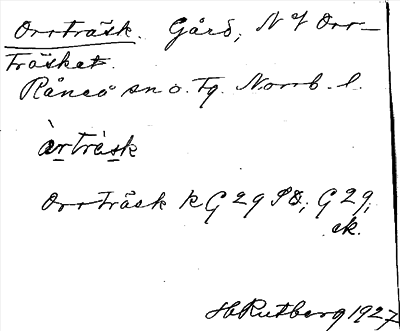 Orrträsk. Gård, N of Orr-
träsket.
Råneå sn o. Tg. Norrb. l.
àrtràsk
Orrträsk k G 29 SO; G 29,
ek.
HRutberg 1927